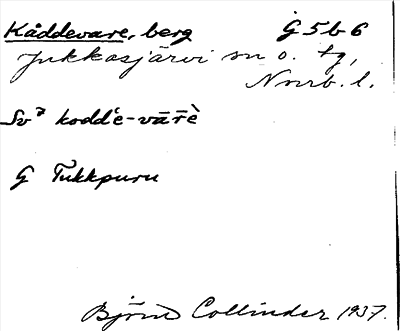 Kåddevare, berg G 5 b 6
Jukkasjärvi sn o. tg,
Nnrb. l.
Sv⁷ kodd'e-vār̄è
G Tukkpuru
Björn Collinder 1937.